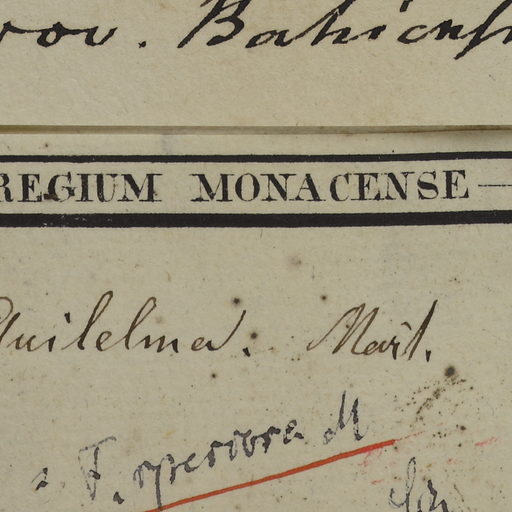 rov. Bahiensi
REGIUM MONACENSE—
Guilelma. Mart.
F. M